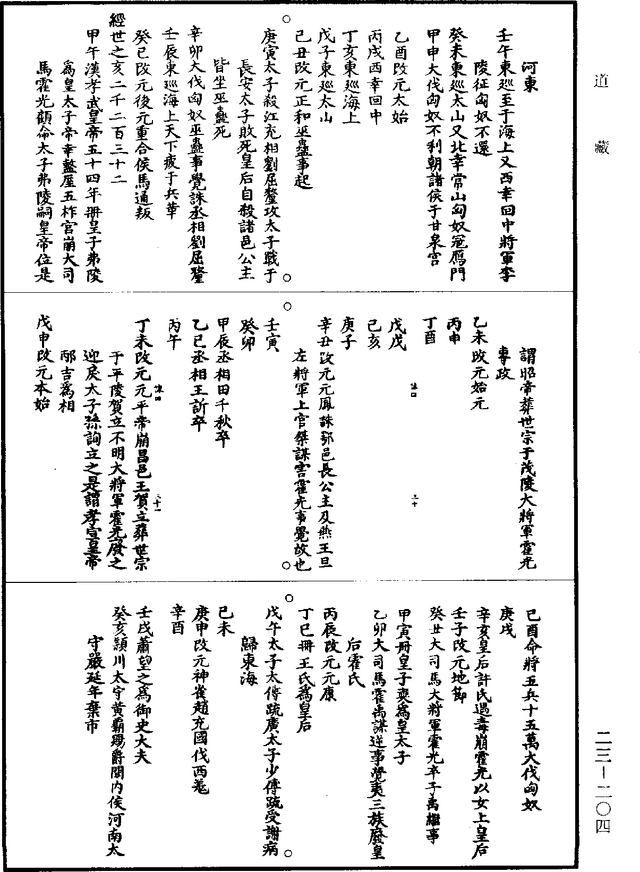 道藏
河東
壬午東巡至于海上又西幸回中將軍李
陵征匈奴不還
癸未東巡太山又北幸常山匈奴寇鴈門
甲申大伐匈奴不利朝諸侯于甘泉宮
乙酉改元太始
丙戌西幸回中
丁亥東巡海上
戊子東巡太山
己丑改元正和巫蠱事起
庚寅太子殺江充相劉屈氂攻太子戰于
長安太子敗死皇后自殺諸邑公主
皆坐巫蠱死
辛卯大伐匈奴巫蠱事覺誅丞相劉屈氂
壬辰東巡海上天下疲于兵革
癸巳改元後元重合侯馬通叛
經世之亥二千二百三十二
甲午漢孝武皇帝五十四年冊皇子弗陵
為皇太子帝幸盩厔五柞宮崩大司
馬霍光顧命太子弗陵嗣皇帝位是
謂昭帝葬世宗于茂陵大將軍霍光
專政
乙未改元始元
丙申
丁酉
戊戌
己亥
庚子
辛丑改元元鳳誅鄂邑長公主及燕王旦
左將軍上官桀謀害霍光事覺故也
壬寅
癸卯
甲辰丞相田千秋卒
乙巳丞相王訢卒
丙午
丁未改元元平帝崩昌邑王賀立葬世宗
于平陵賀立不明大將軍霍光廢之
迎戾太子孫詢立之是謂孝宣皇帝
邴吉為相
戊申改元本始
己酉命將五兵十五萬大伐匈奴
庚戌
辛亥皇后許氏遇毒崩霍光以女上皇后
壬子改元地節
癸丑大司馬大將軍霍光卒子禹繼事
甲寅冊皇子奭為皇太子
乙卯大司馬霍禹謀逆事覺夷三族廢皇
后霍氏
丙辰改元元康
丁巳冊王氏為皇后
戊午太子太傅疏廣太子少傅疏受謝病
歸東海
己未
庚申改元神雀趙充國伐西羌
辛酉
壬戌蕭望之為御史大夫
癸亥潁川太守黃霸賜爵關內侯河南太
守嚴延年棄市
二三—二〇四